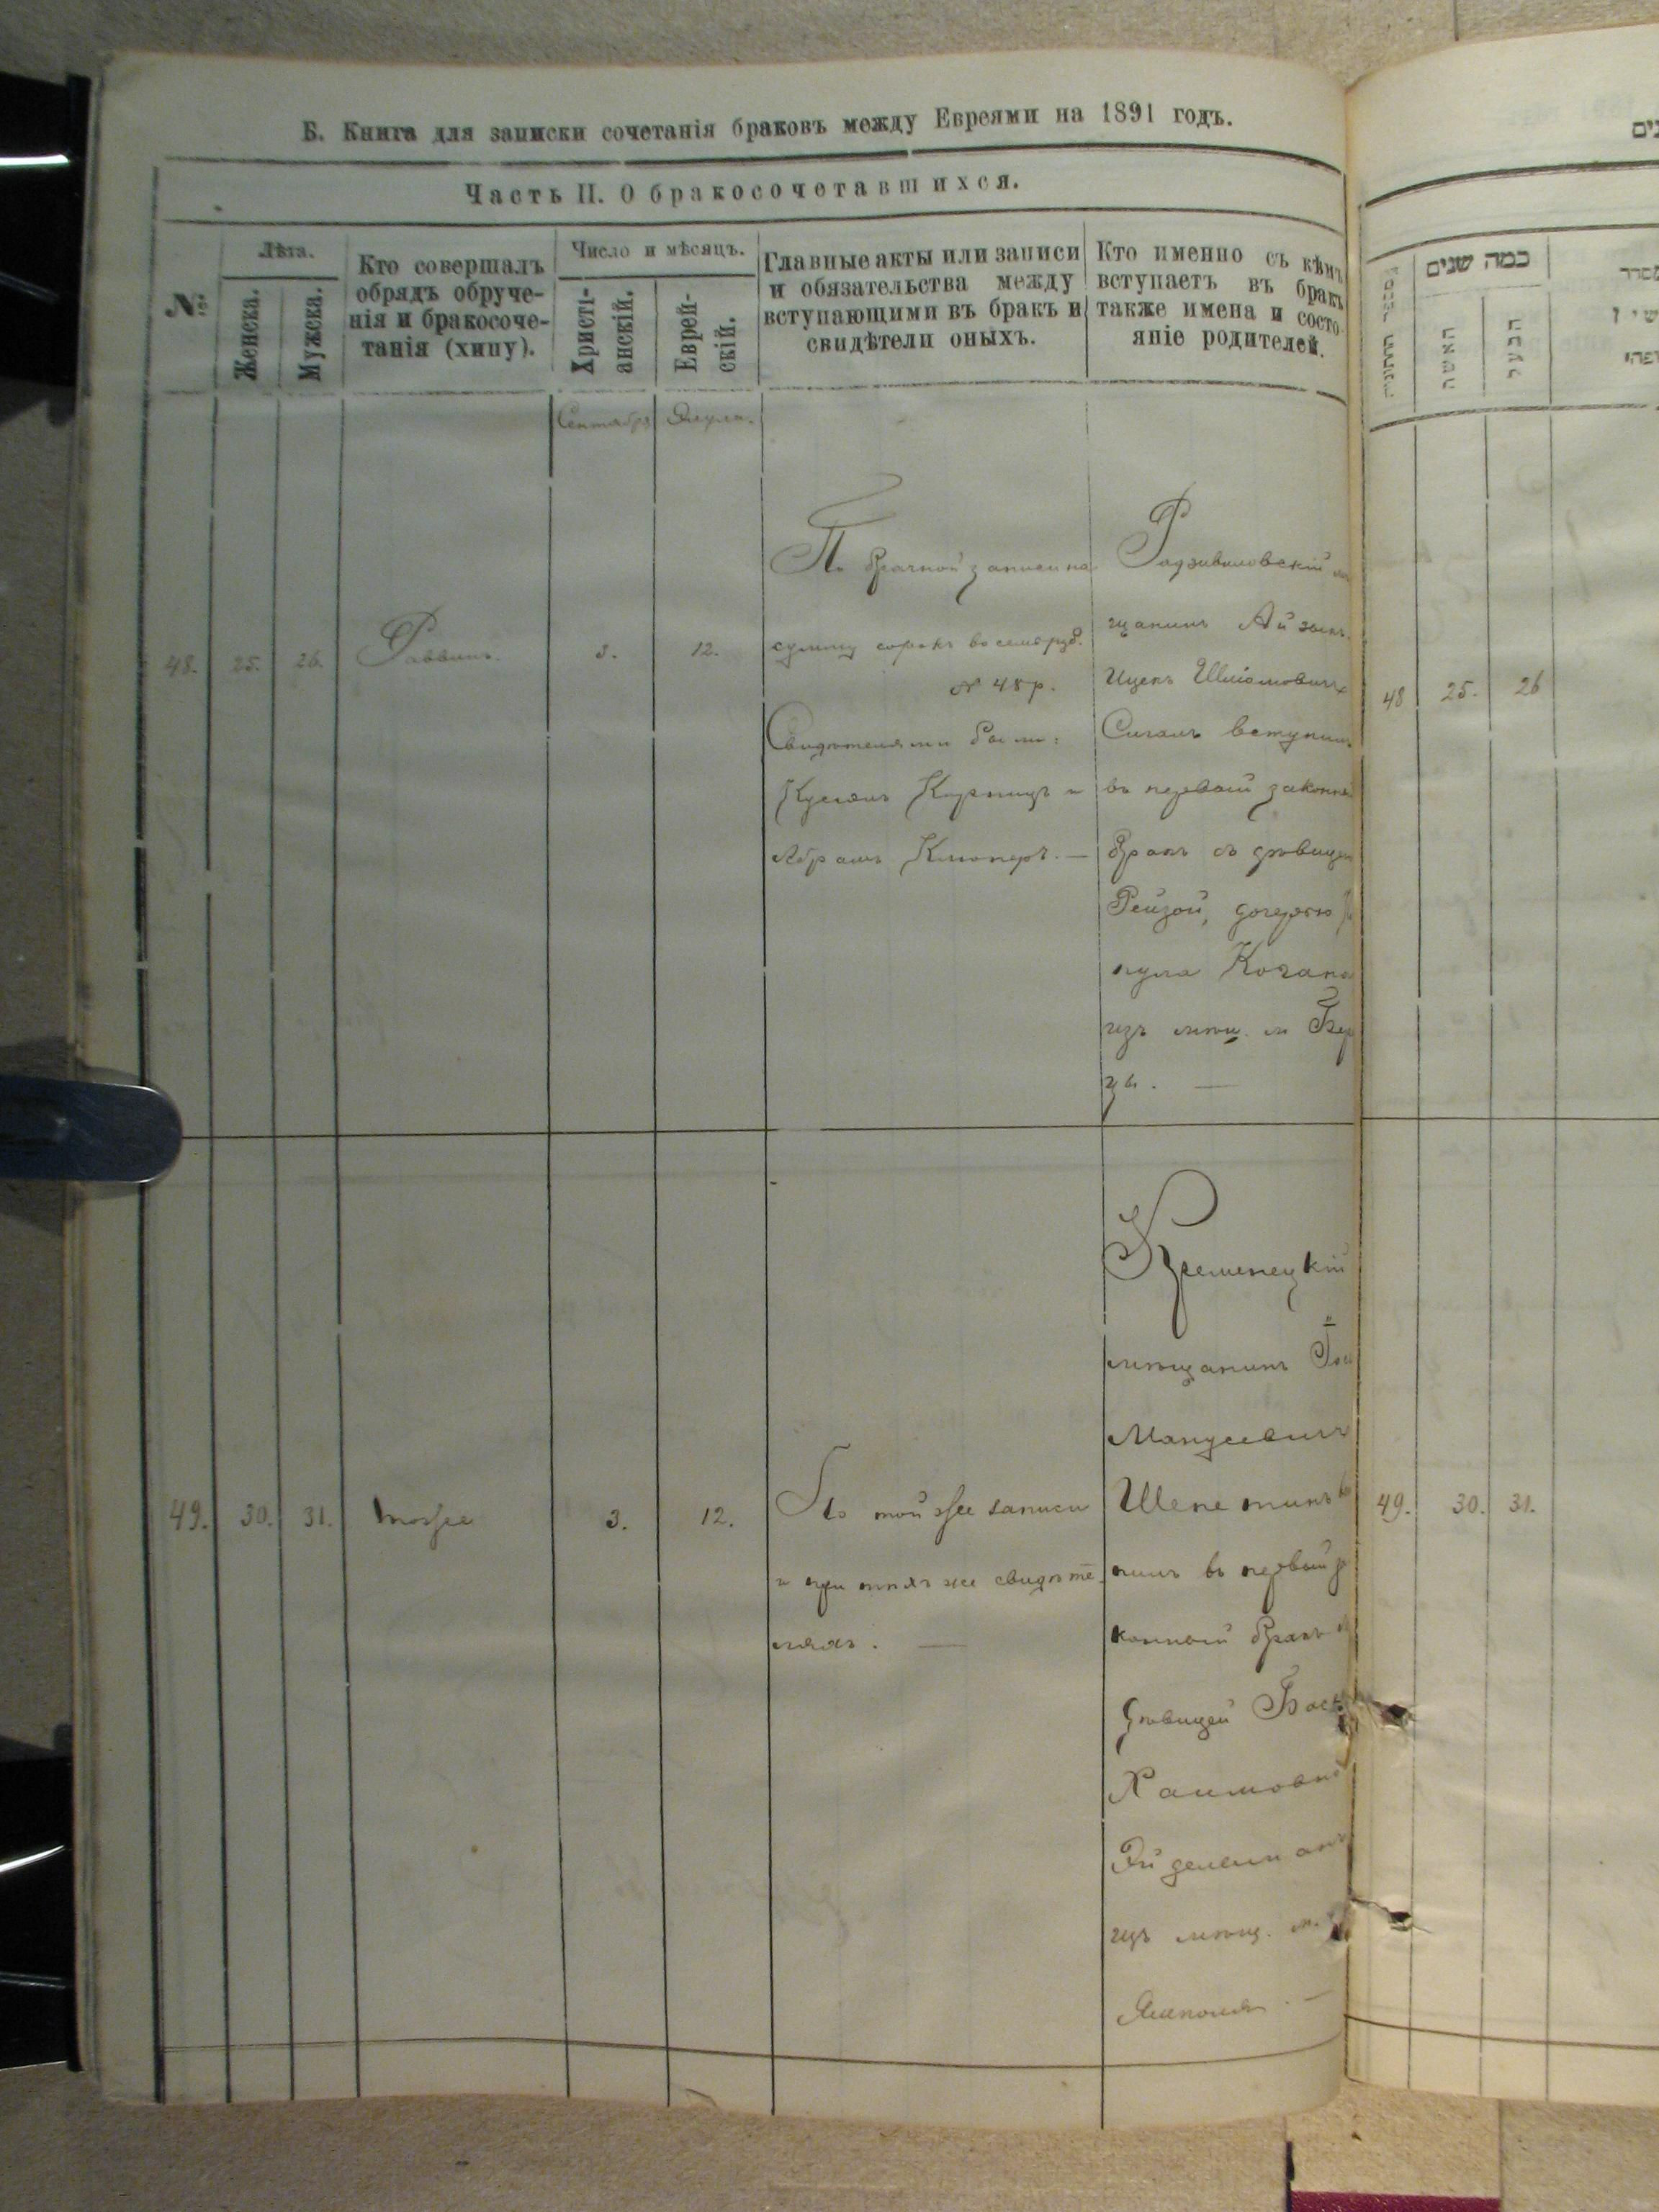 Б. Книга для записки сочетанія браковъ между Евреями на 1891 годъ.
Часть II. О бракосочетавшихся.
№
Лѣта.
Женска.
Мужска.
Кто совершалъ
обрядъ обруче-
нія и бракосоче-
танія (хипу).
Число и мѣсяцъ.
Христі-
анскій.
Еврей-
скій.
Главные акты или записи
и обязательства между
вступающими въ бракъ и
свидѣтели оныхъ.
Кто именно съ кѣмъ
вступаетъ въ бракъ
также имена и состо-
яніе родителей.
Сентября
Элула.
48.
25.
26.
Раввинъ.
3.
12.
По брачной записи на
сумму сорокъ восемь руб.
№ 48 р.
Свидѣтелями были:
Абрамъ
Радзивиловскій
щанинъ Айзикъ
Ицекъ Шліомовичъ
Сигалъ вступилъ
въ первый законный
бракъ съ дѣвицею
Рейзой, дочерью
нула Кочана
изъ мѣщ. м Бер
зы. —
49.
30.
31.
тоже
3.
12.
По той же записи
и при тѣхъ же свидѣте
ляхъ. —
Кременецкій
мѣщанинъ
Манусевичъ
пилъ въ первый за
конный бракъ
дѣвицей
Хаимовной
Эйдельманъ
изъ мѣщ. м.
Ямполя. —
כמה שנים
האשה
הבעל
48
25.
26
49.
30.
31.